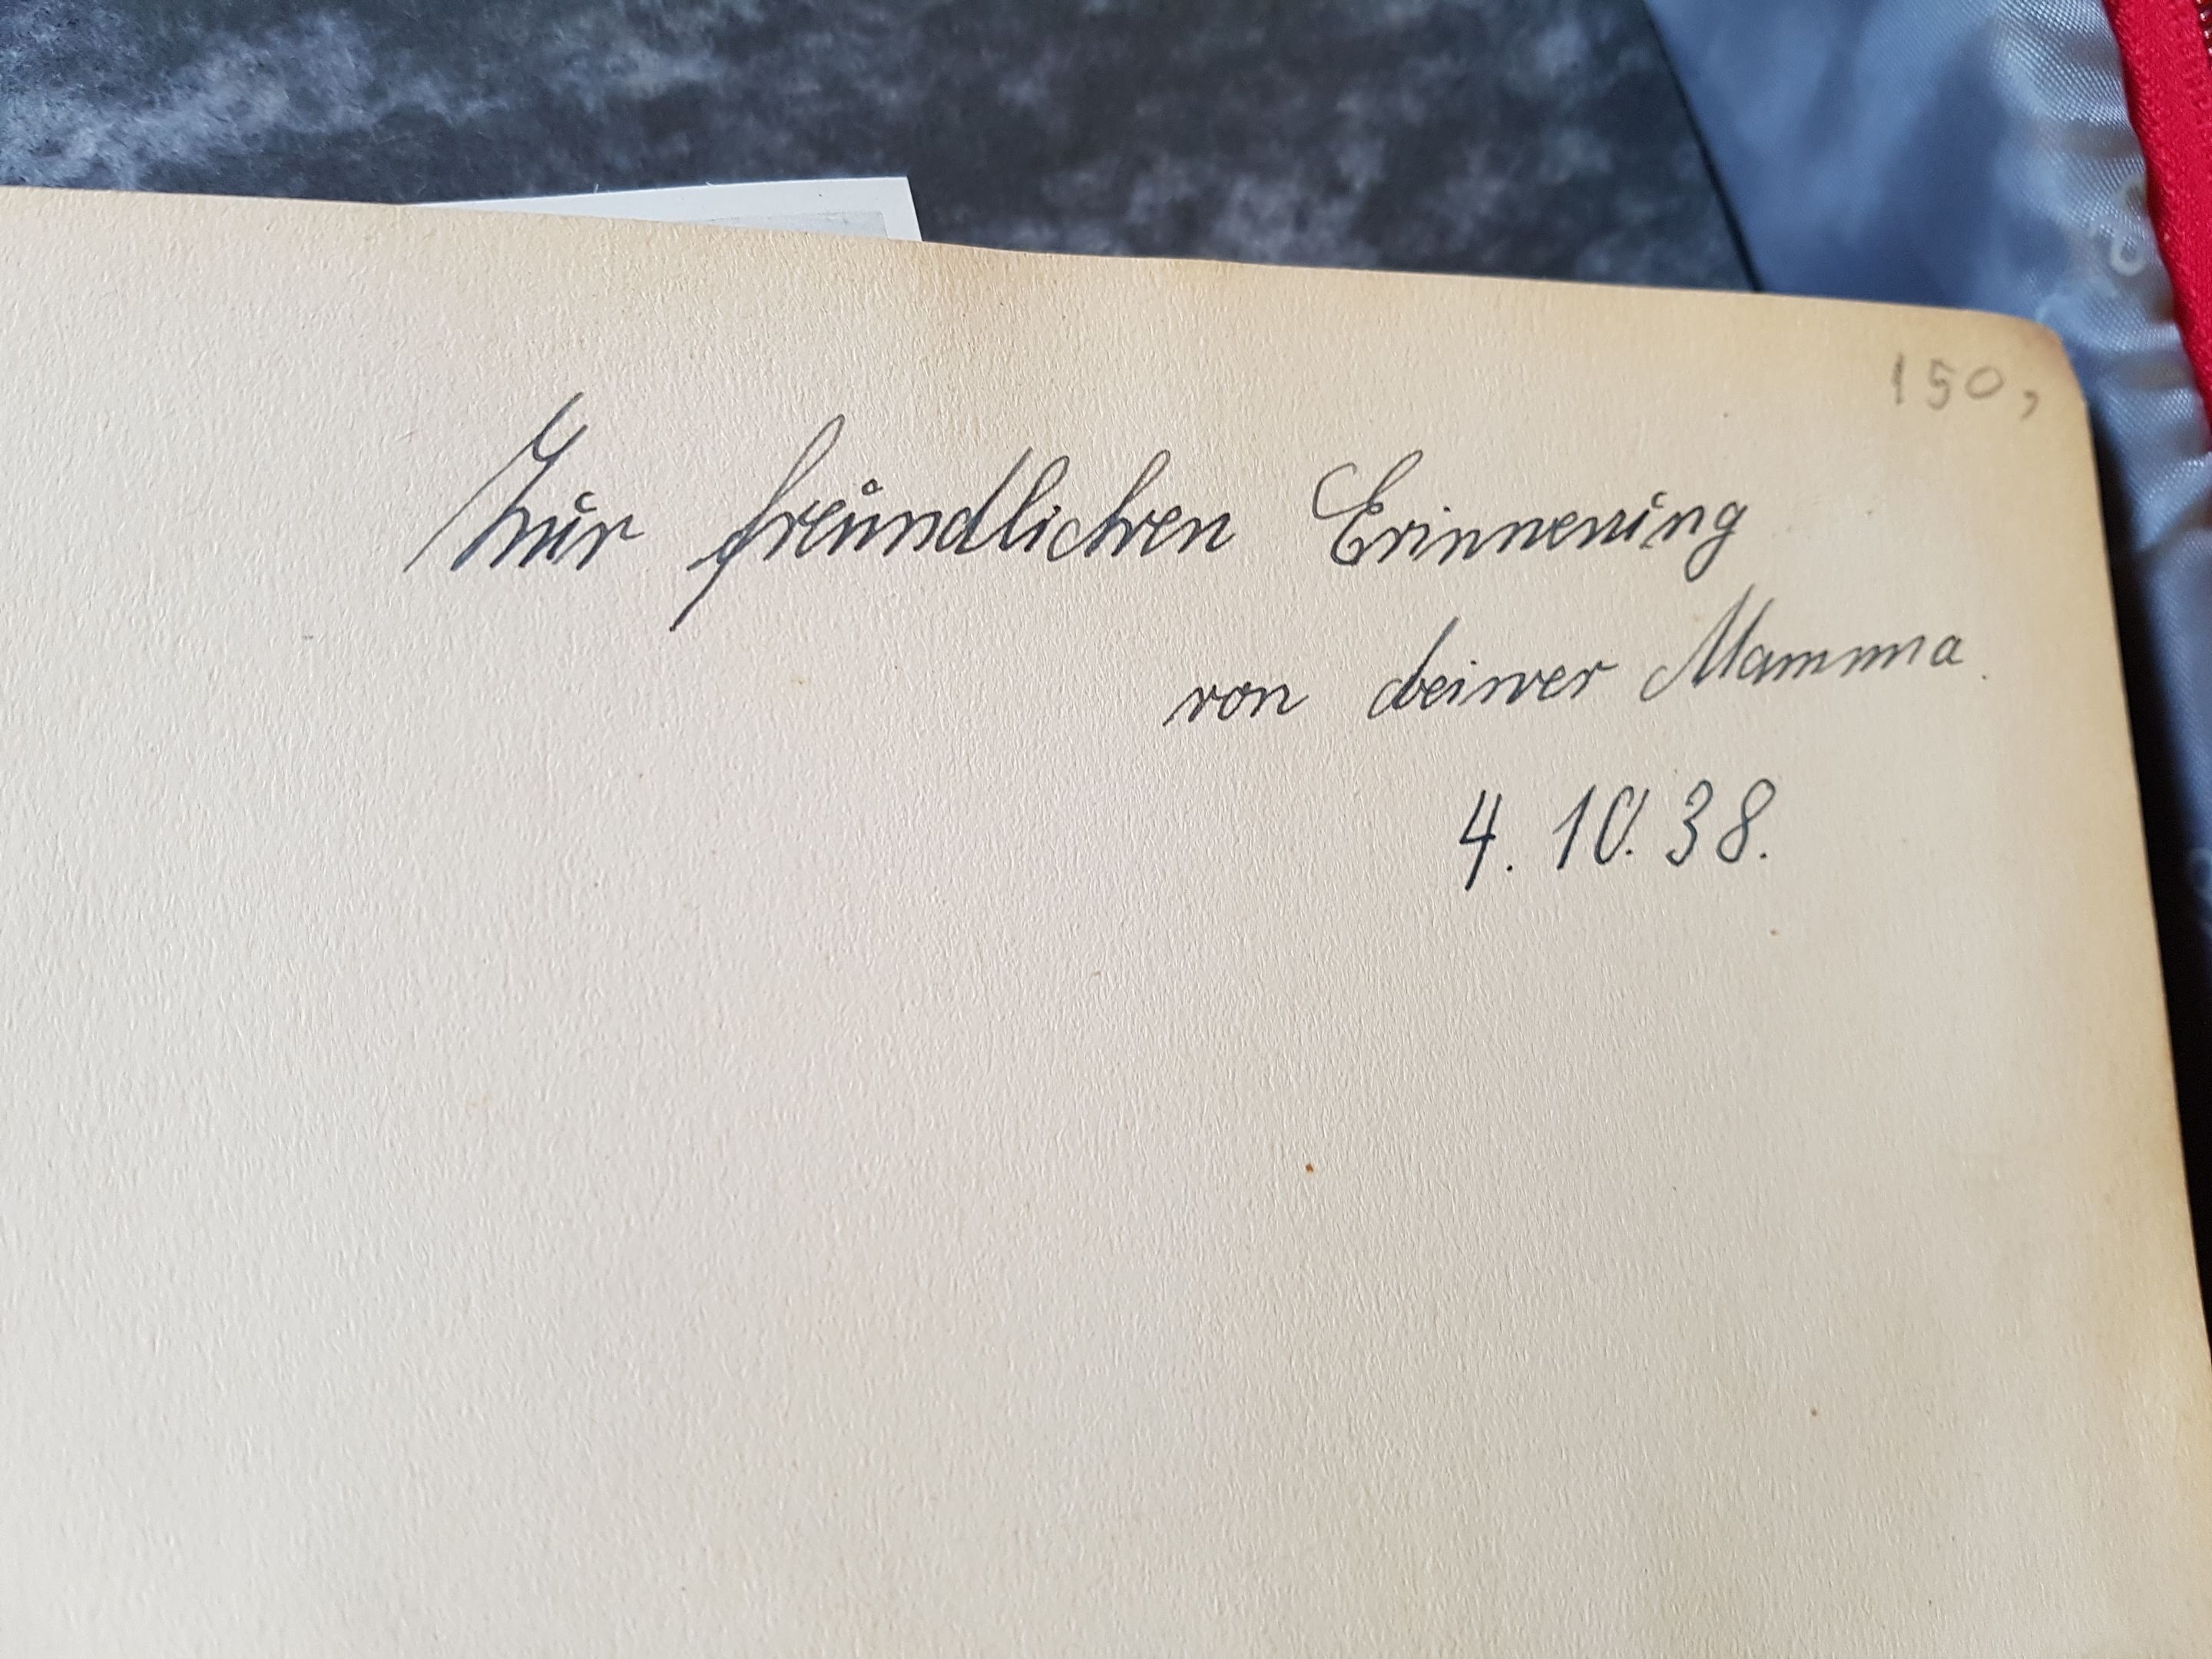 150,
Zur freundlichen Erinnerung
von deiner Mamma
4. 10. 38.